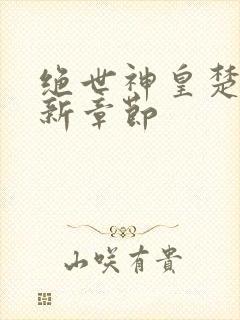 绝世神皇楚
新章节
山咲有貴